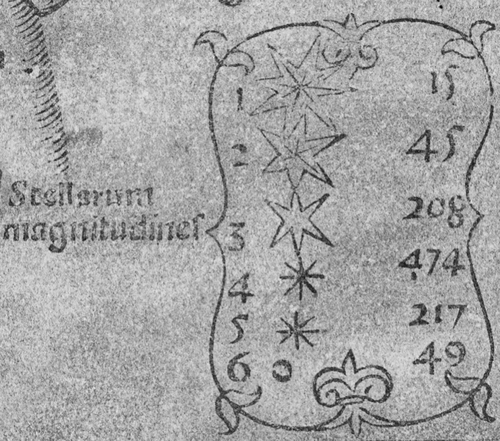 Stellarum
magnitudines
1 15
2 45
3 208
4 474
5 217
6 49